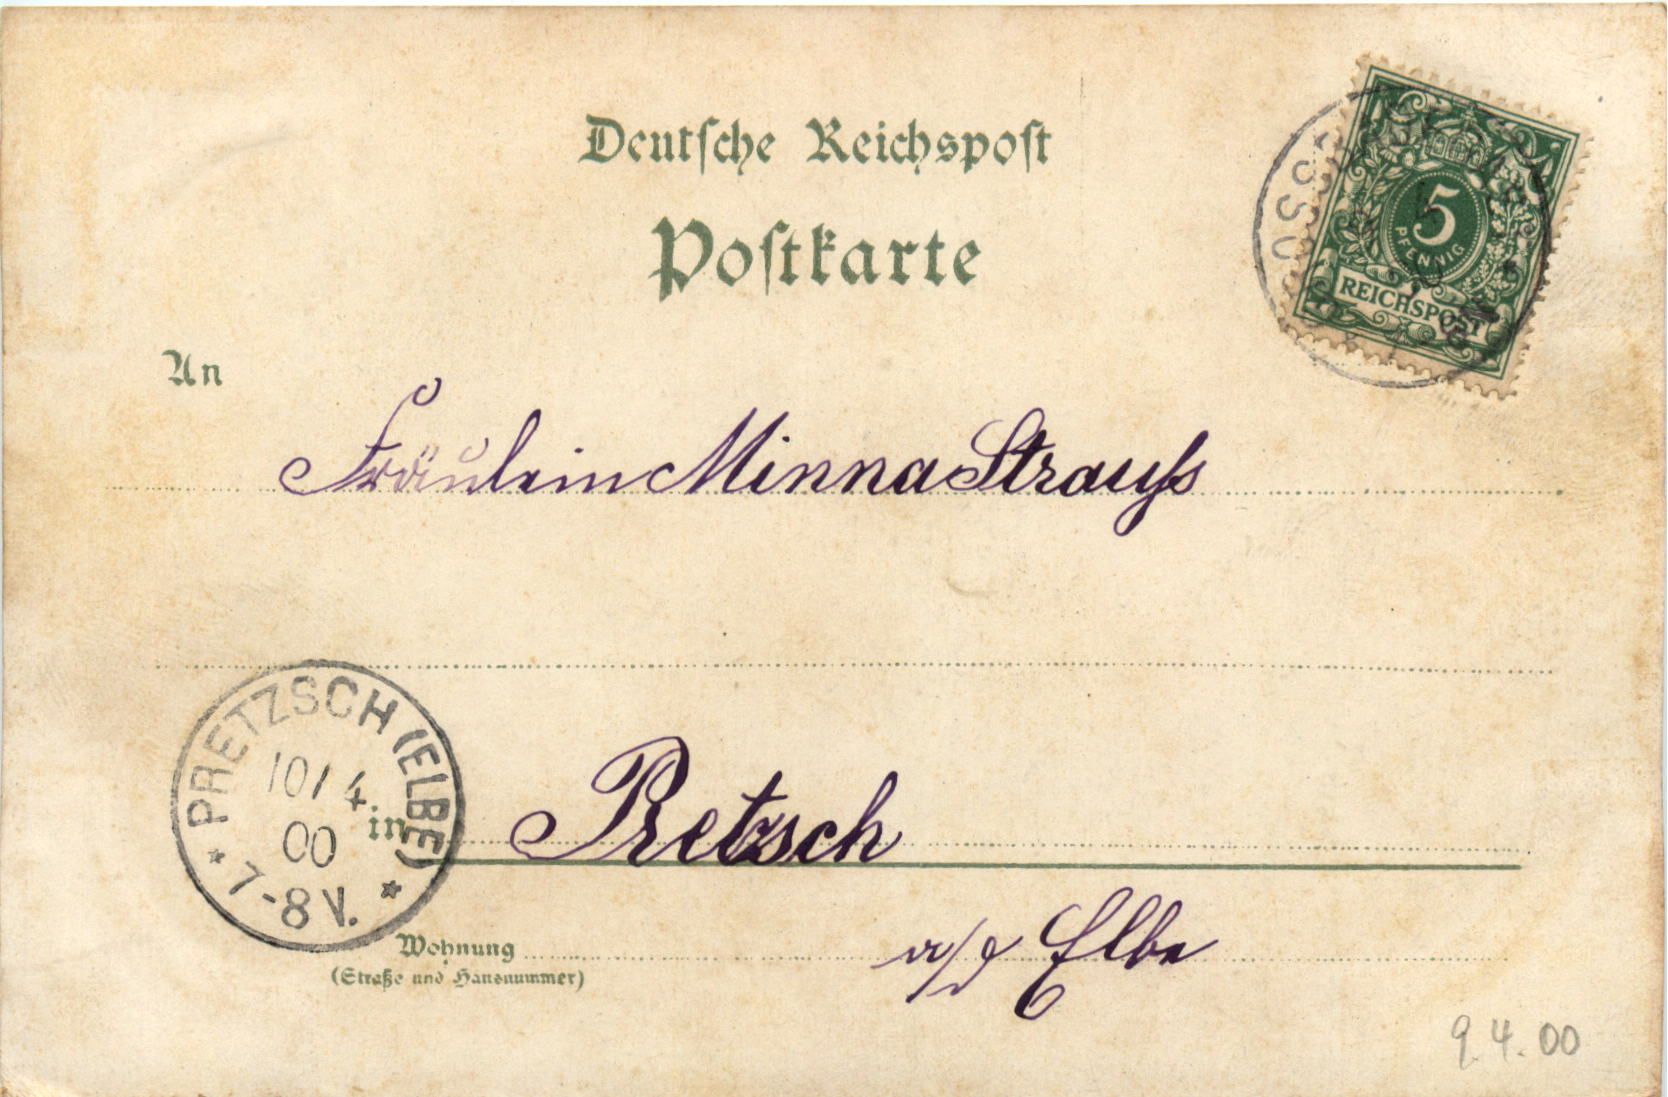 Deutsche Reichspost
Postkarte
5
PFENNIG
REICHSPOST
An
Fräulein Minna Strauss
PRETZSCH (ELBE)
10/4
00
7-8V.
in
Pretzsch
Wohnung
(Straße und Hausnummer)
a/d Elbe
9.4.00